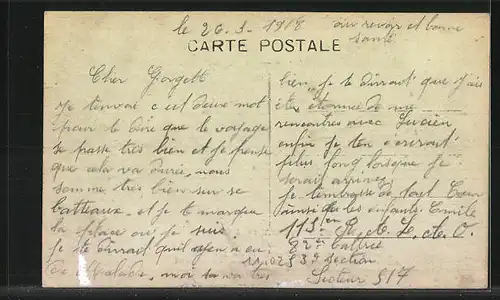 le 26-3-1918
au revoir et bonne
santé
CARTE POSTALE
Cher Gorgett
Je tenvoi c est deux mot
pour te dire que le voyage
se passe tres bien et je pense
que cela va durée, nous
somme tres bien sur se
batteaux, et je te marque
ta place ou je suis
je te dirrait quil y en a eu
de Malade, moi sa va tres
bien, je te dirrait que j'ais
été étonnée de me
rencontrer avec Lucien
enfin je ten écrirait
plus long lorsque je
serait arriver
je tembrasse de tout Coeur
ainsi que les enfants Emile
113 R.A.L.A.
22 battrie
53 Section
Secteur 517